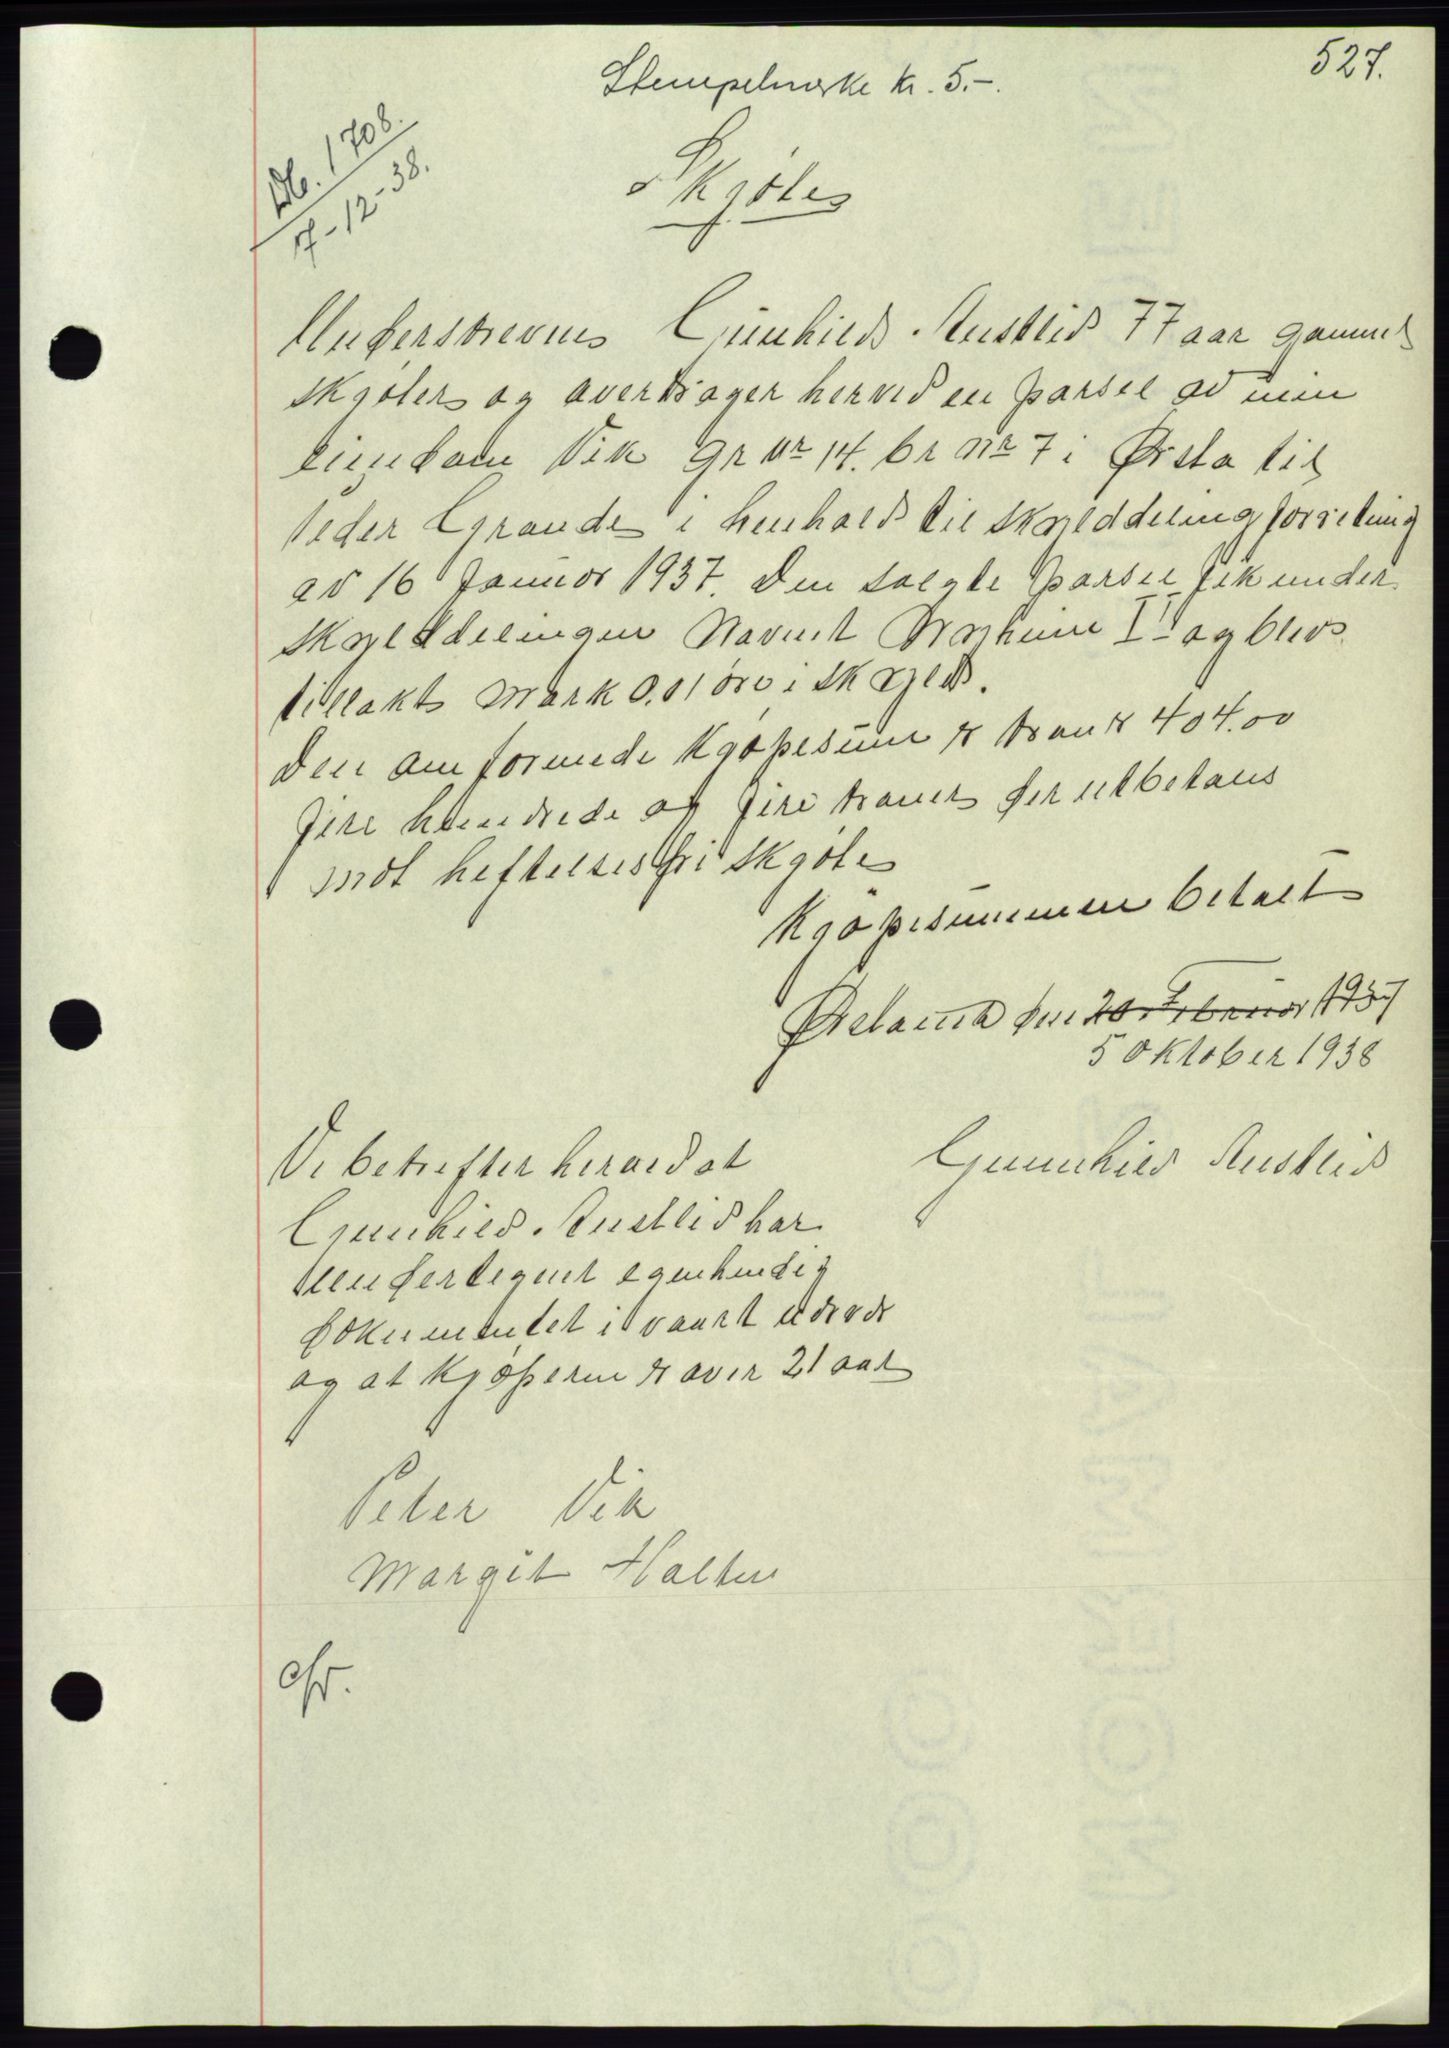 527.
Stempelmerke kr. 5.-.
Db. 1708.
17-12-38.
Skjøte
Underskrevne Gunhild Austlid 77 aar gammel
skjøter og averdrager herved en parsel av min
eiendom Vik gr nr 14. br nr 7 i Ørsta til
Peder Grande i henhold til skylddeling forretning
av 16 Januar 1937. Den solgte parsel fik under
skylddelingen Navnet II og blev
tillakt mark 0.01 øre i skyld.
Den om forenede kjøpesum er kroner 404.00
fire hundrede og fire kroner der utbetales
mot heftelsesfri skjøte
Kjøpesummen betalt
Ørstavik den 20 Februar 1937
5 Oktober 1938
Gunnhild Austlid
Vi bekrefter herved at
Gunhild Austlid har
undertegnet egenhendig
dokumentet i vaart nærvær
og at kjøperen er over 21 aar
Peter Vik
Margit Halten